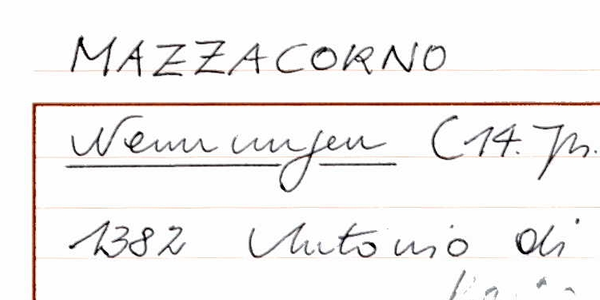 MAZZACORNO
Nennungen (14. Jh.
1382 Antonio di